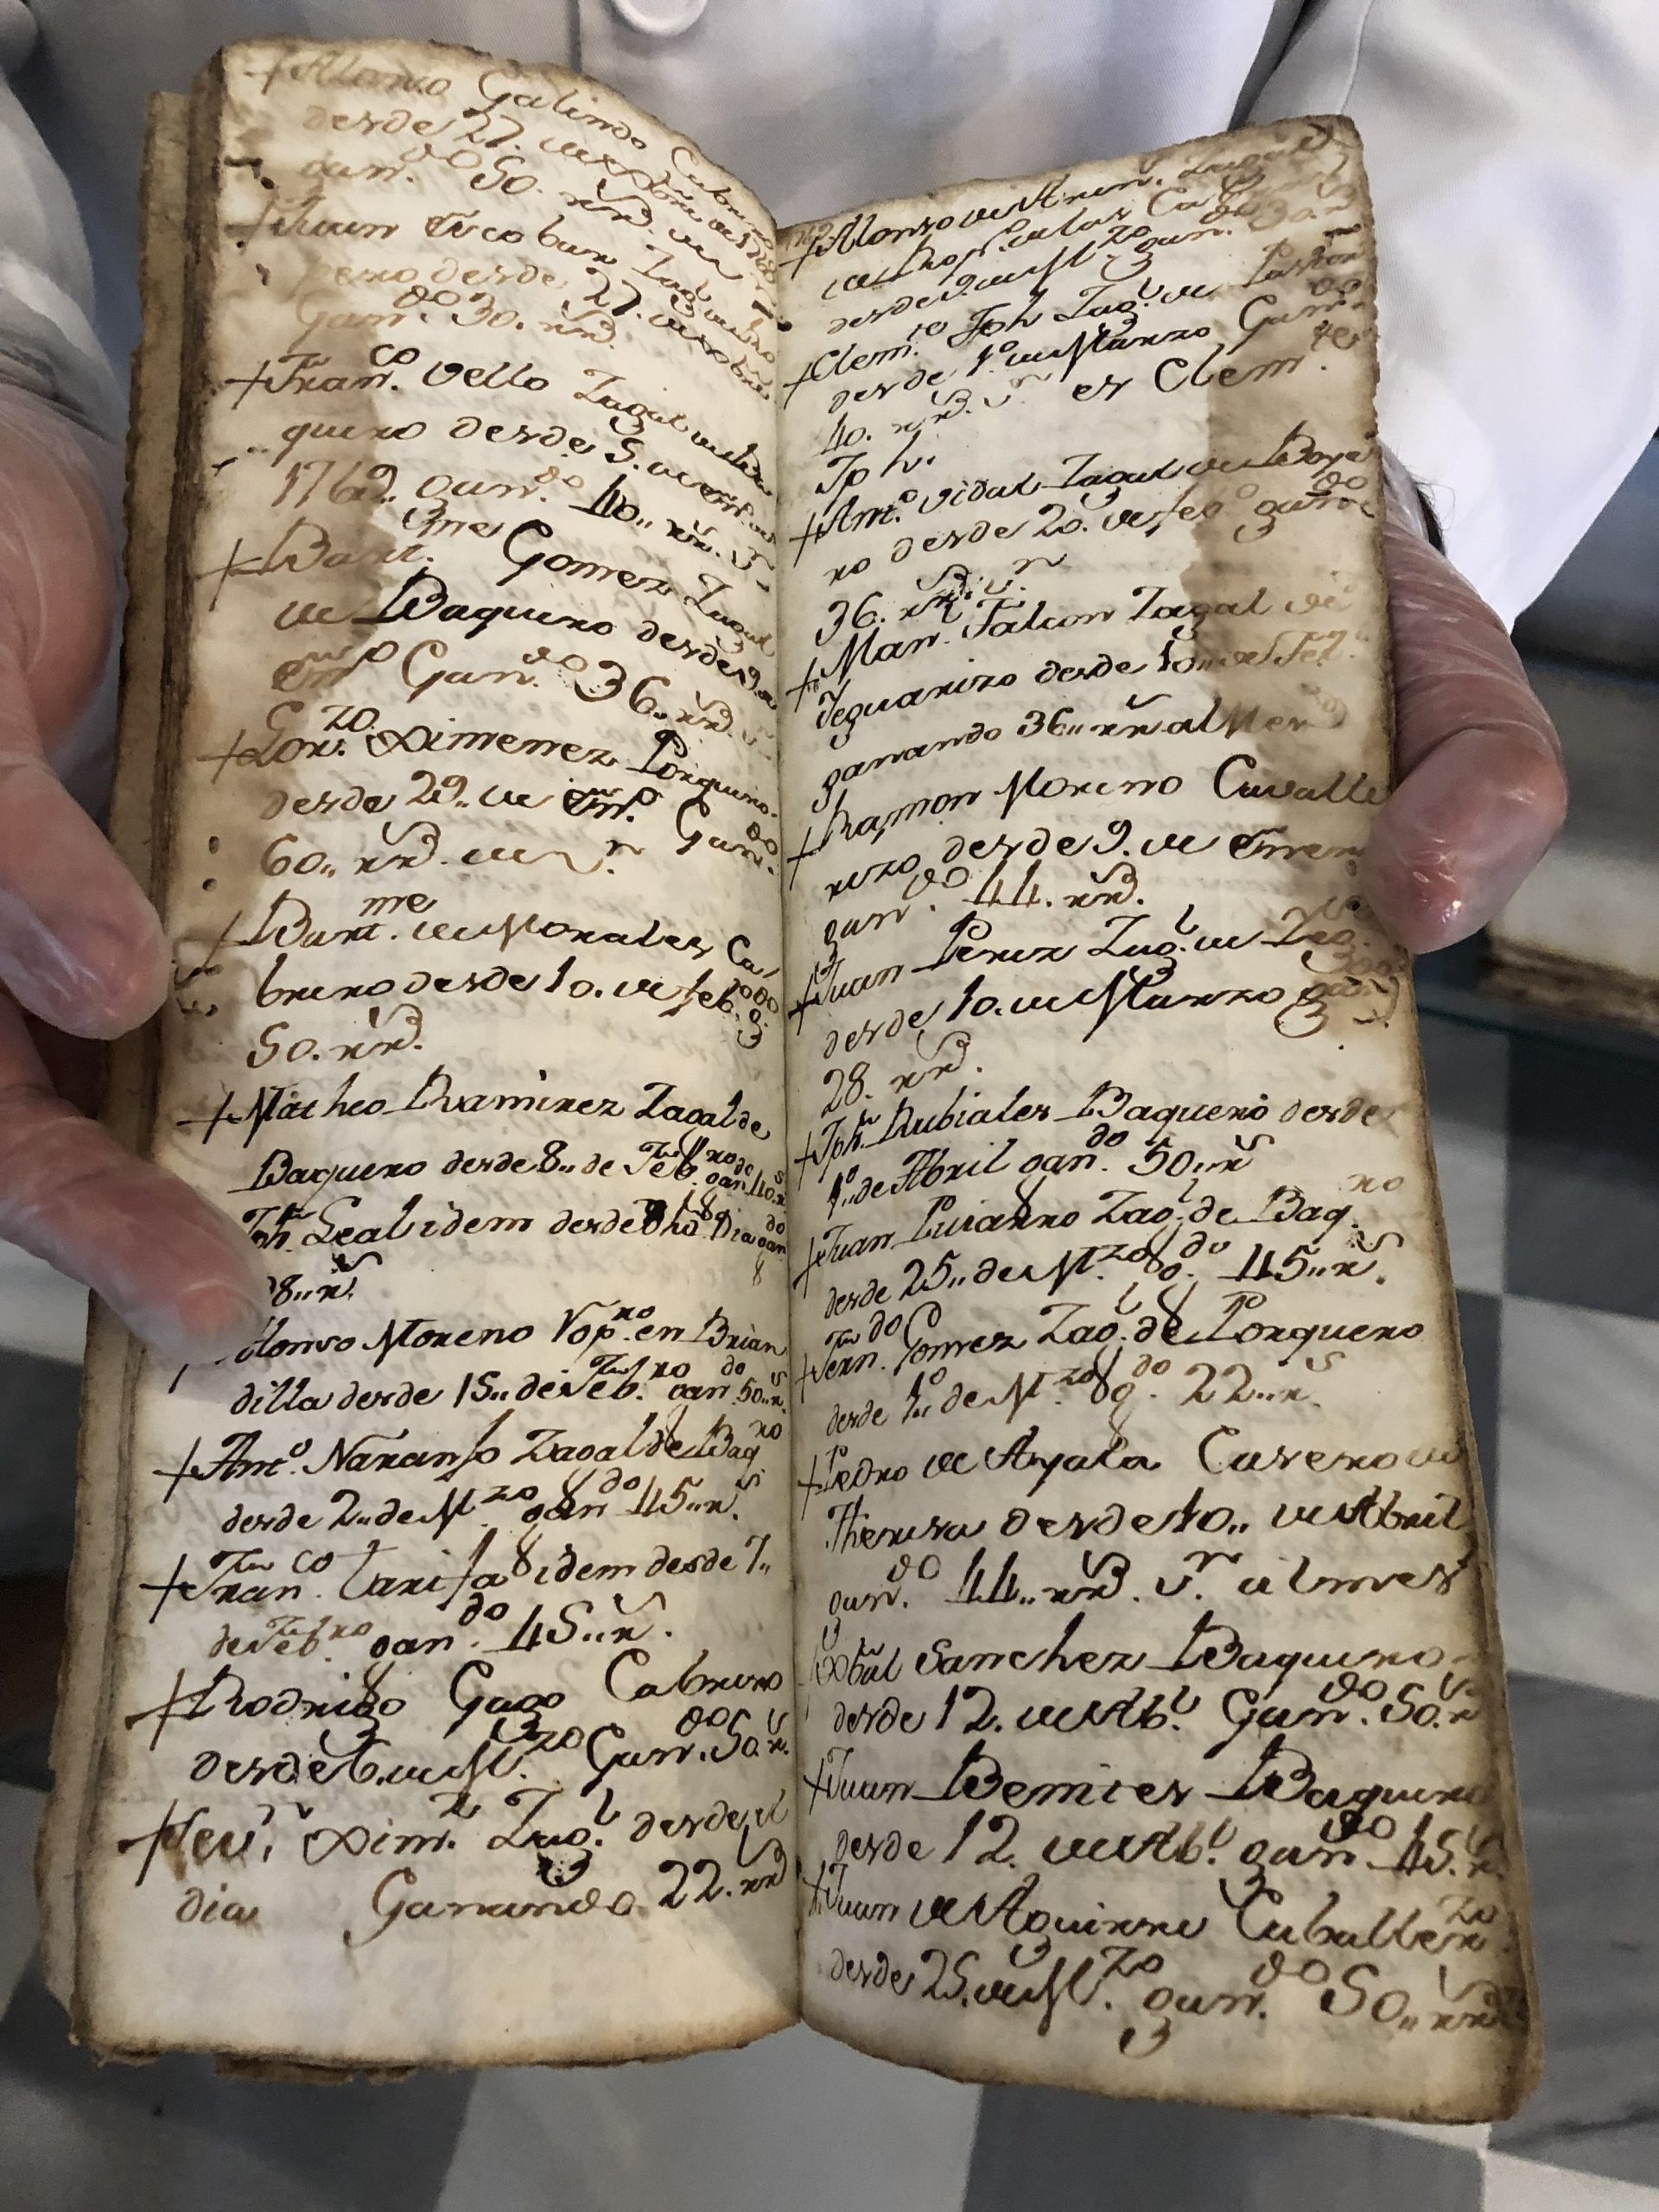 + Alonso Galindo Cabrero
desde 27. de
gan.do 50. rrs. de
+ Juan Escobar Zag.l de
pero desde 27. de
Gan.do 30. rrs.
+ Fran.co Vello Zagal de
quero desde 5. de
1762. gan.do 40.. rrs.
+ Bart.me Gomez Zagal
de Baquero desde 9. de
En.o Gan.do 36.. rrs.
+ Lor.zo Ximenez Porquero
desde 29.. de En.o Gan.do
60.. rrs. de v.n
+ Bart.me de Morales Ca
brero desde 10. de feb.ro g.do
50. rrs.
+ Matheo Ramirez Zagal de
Baquero desde 8.. de Feb.ro gan.do 40.. rs.
Jph. Leal idem desde dho. dia gan.do
8.. rs.
Alonso Moreno Yop.ro en Brian
dilla desde 15.. de Feb.ro gan.do 50.. rs.
+ Ant.o Naranjo Zagal de Baq.ro
desde 2.. de M.zo gan.do 45.. rs.
+ Fran.co Tarifa idem desde 7..
de Feb.ro gan.do 45.. rs.
+ Rodrigo Gago Cabrero
desde 6. de M.zo Gan.do 50. rs.
+ Xim.z Zag.l desde el
dia Ganando 22. rrs.
+ Alonso de Zagal
de las Cabras
desde 9. de M.zo gan.do 30. rrs.
+ Clem.te Jph Zag.l de Pastor
desde 1.o de Marzo Gan.do
40. rrs. v.n es Clem.te
Jph.
+ Ant.o Vidal Zagal de Boye
ro desde 20. de feb.o gan.do
36. rrs. v.n
+ Man.l Falcon Zagal de
Yeguarizo desde 10.. de Feb.o
ganando 36.. rrs al Mes
+ Ramon Moreno Cavalle
rizo desde 9. de Enero
gan.do 44. rrs.
+ Juan Perez Zag.l de Yeg.
desde 10. de Marzo
28. rrs.
+ Jph. Rubiales Baquero desde
1.o de Abril gan.do 50.. rs
+ Juan Luzanno Zag.l de Baq.ro
desde 25.. de M.zo g.do 45.. rs.
+ Fern.do Gomez Zag.l de Porquero
desde 1.o de M.zo g.do 22.. rs.
+ Pedro de Ayala Casero de
Theresa desde 10.. de Abril
gan.do 44.. rrs. v.n al mes
Xobal Sanchez Baquero
desde 12. de Ab.l Gan.do 50. rs
+ Juan Bemier Baquero
desde 12. de Ab.l gan.do 45. rs.
+ Juan de Aguirre Caballer.zo
desde 25. de M.zo gan.do 50.. rrs